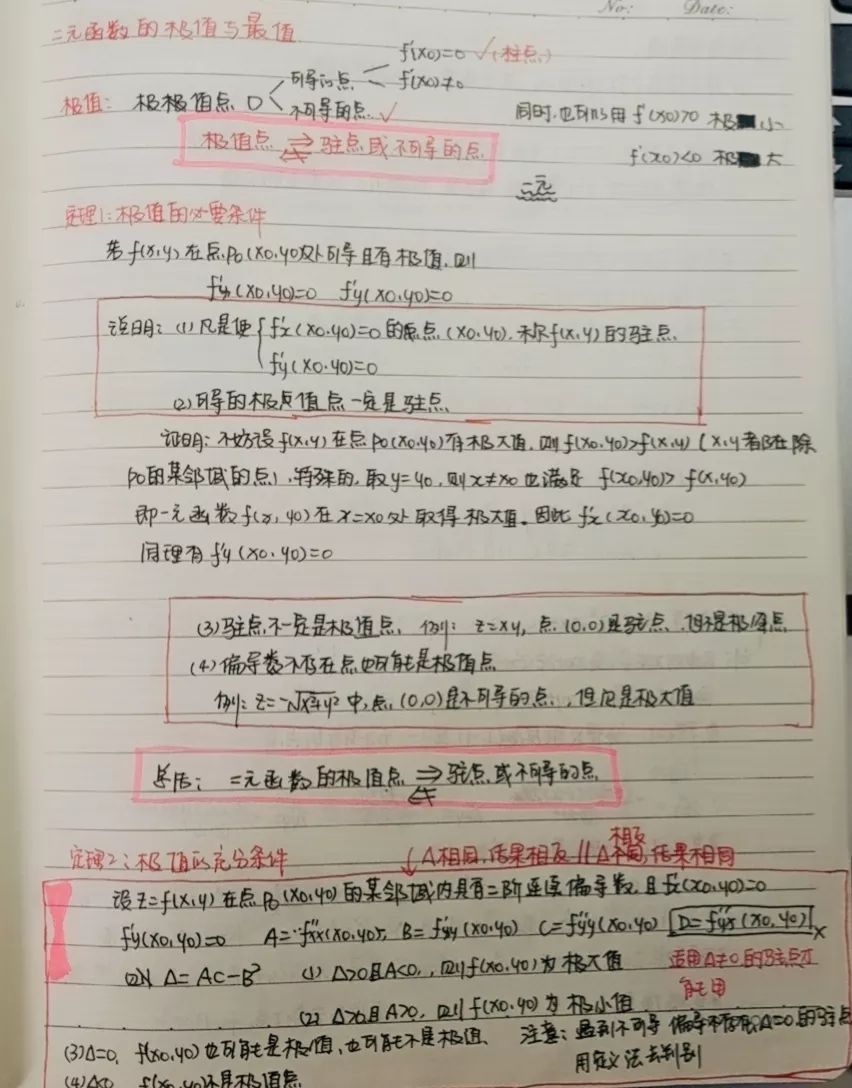 No: Date:
二元函数的极值与最值
f'(x0)=0 ✓(驻点)
可导的点 f'(x0)≠0
极值: 极极值点 D 不可导的点 ✓
同时,也可以用 f'(x0)>0 极小
极值点 ⇄ 驻点或不可导的点
f'(x0)<0 极大
二元
定理1:极值的必要条件
若f(x,y)在点P0(x0,y0)处可导且有极值,则
f'x(x0,y0)=0 f'y(x0,y0)=0
说明:(1)凡是使 f'x(x0,y0)=0 的点(x0,y0),称f(x,y)的驻点
f'y(x0,y0)=0
(2)可导的极值点一定是驻点
证明:不妨设f(x,y)在点P0(x0,y0)有极大值,则f(x0,y0)>f(x,y)(x,y都在除
P0的某邻域的点),特殊的,取y=y0,则x≠x0也满足 f(x0,y0)>f(x,y0)
即一元函数f(x,y0)在x=x0处取得极大值。因此f'x(x0,y0)=0
同理有f'y(x0,y0)=0
(3)驻点不一定是极值点,例:z=xy,点(0,0)是驻点,但不是极值点
(4)偏导数不存在点也可能是极值点
例:z=-√x²+y² 中,点(0,0)是不可导的点,但是极大值
总结:二元函数的极值点 ⇄ 驻点或不可导的点
定理2:极值的充分条件
↓A相同,结果相反 // A不同,相反 结果相同
设z=f(x,y)在点P0(x0,y0)的某邻域内具有二阶连续偏导数,且f'x(x0,y0)=0
f'y(x0,y0)=0 A=f''xx(x0,y0), B=f''xy(x0,y0) C=f''yy(x0,y0) D=f''yx(x0,y0) x
则 Δ=AC-B² (1) Δ>0且A<0,则f(x0,y0)为极大值 适用Δ≠0的驻点才
能用
(2) Δ>0且A>0,则f(x0,y0)为极小值
(3)Δ=0, f(x0,y0)也可能是极值,也可能不是极值、 注意:遇到不可导 偏导不存在,Δ=0的驻点
用定义法去判别
(4)Δ<0 f(x0,y0)不是极值点